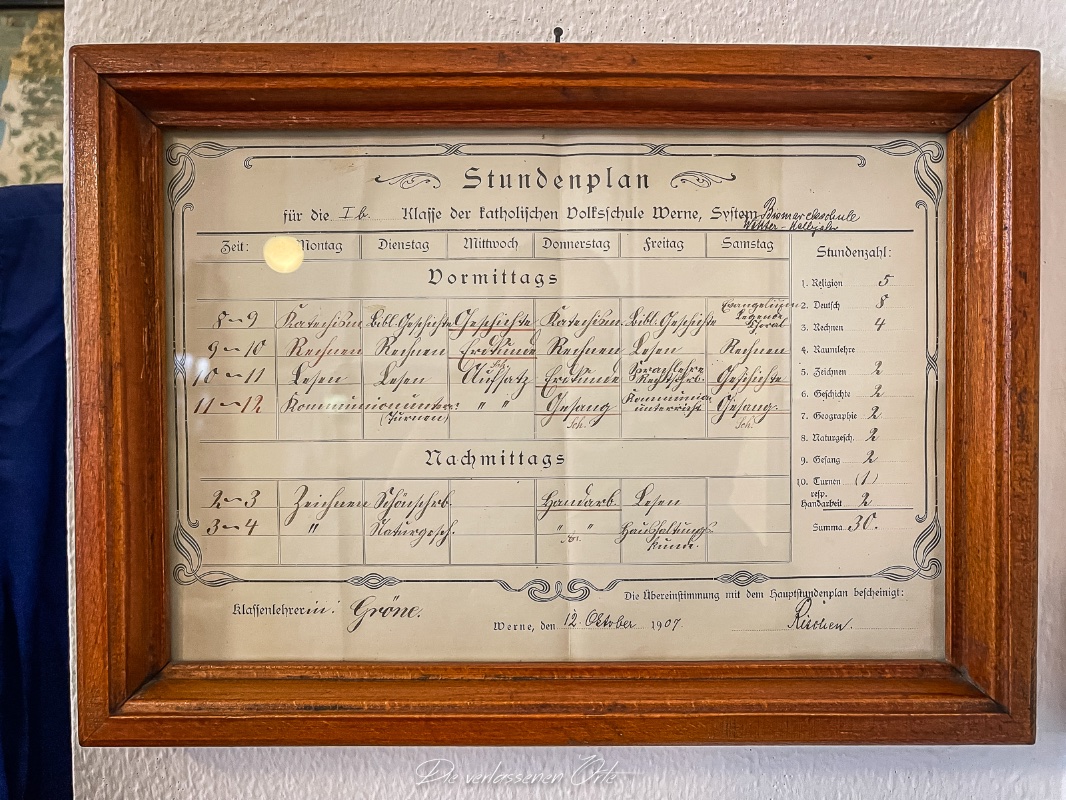 Stundenplan
für die Ib. Klasse der katholischen Volksschule Werne, System Bismarckschule
Winter-Halbjahr
Zeit: Montag Dienstag Mittwoch Donnerstag Freitag Samstag
Stundenzahl:
Vormittags
8-9 Katechism. Bibl. Geschichte Geschichte Katechism. Bibl. Geschichte Evangelium Legende Choral
9-10 Rechnen Rechnen Erdkunde Rechnen Lesen Rechnen
10-11 Lesen Lesen Aufsatz Erdkunde Sprachlehre Rechtschrb. Geschichte
11-12 Kommunionunterr. (Turnen) " " Gesang Kommunionunterricht Gesang.
Nachmittags
2-3 Zeichnen Schönschrb. Handarb. Lesen
3-4 " Naturgesch. " " Haushaltungskunde.
1. Religion 5
2. Deutsch 8
3. Rechnen 4
4. Raumlehre
5. Zeichnen 2
6. Geschichte 2
7. Geographie 2
8. Naturgesch. 2
9. Gesang 2
10. Turnen (1)
resp.
Handarbeit 2
Summa 30.
Die Übereinstimmung mit dem Hauptstundenplan bescheinigt:
Klassenlehrerin: Gröne.
Werne, den 12. Oktober 1907
Die verlassenen Orte